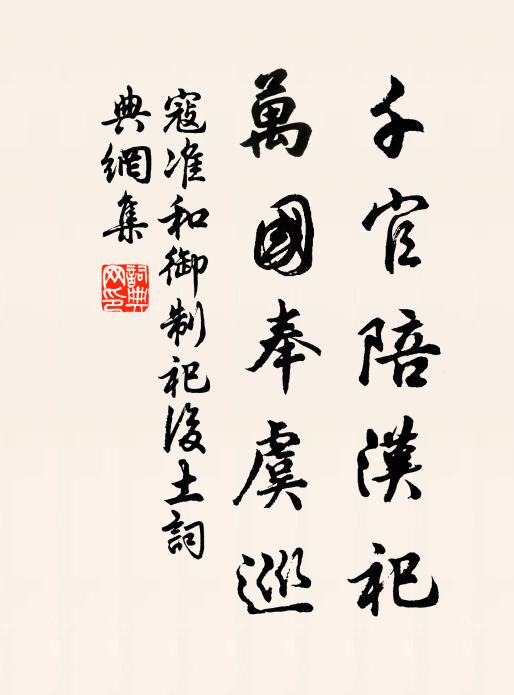 千官陪漢祀
萬國奉虞巡
寇准和御制祀後土詞
典網集
詞典網印